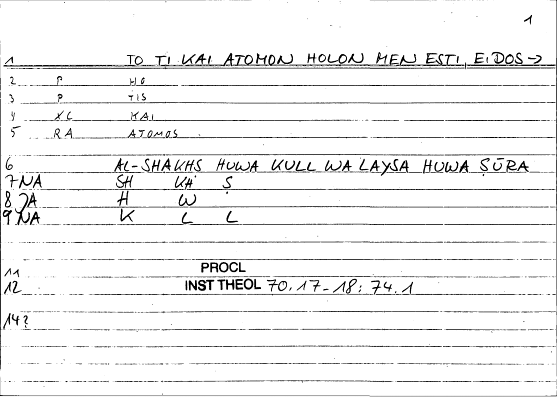 1
1 TO TI KAI ATOMON HOLON MEN ESTI, EIDOS →
2 P HO
3 P TIS
4 XC KAI
5 RA ATOMOS
6 AL-SHAKHS HUWA KULL WA LAYSA HUWA ṢŪRA
7 NA SH KH Ṣ
8 JA H W
9 NA K L L
11 PROCL
12 INST THEOL 70.17-18: 74.1
14 ?